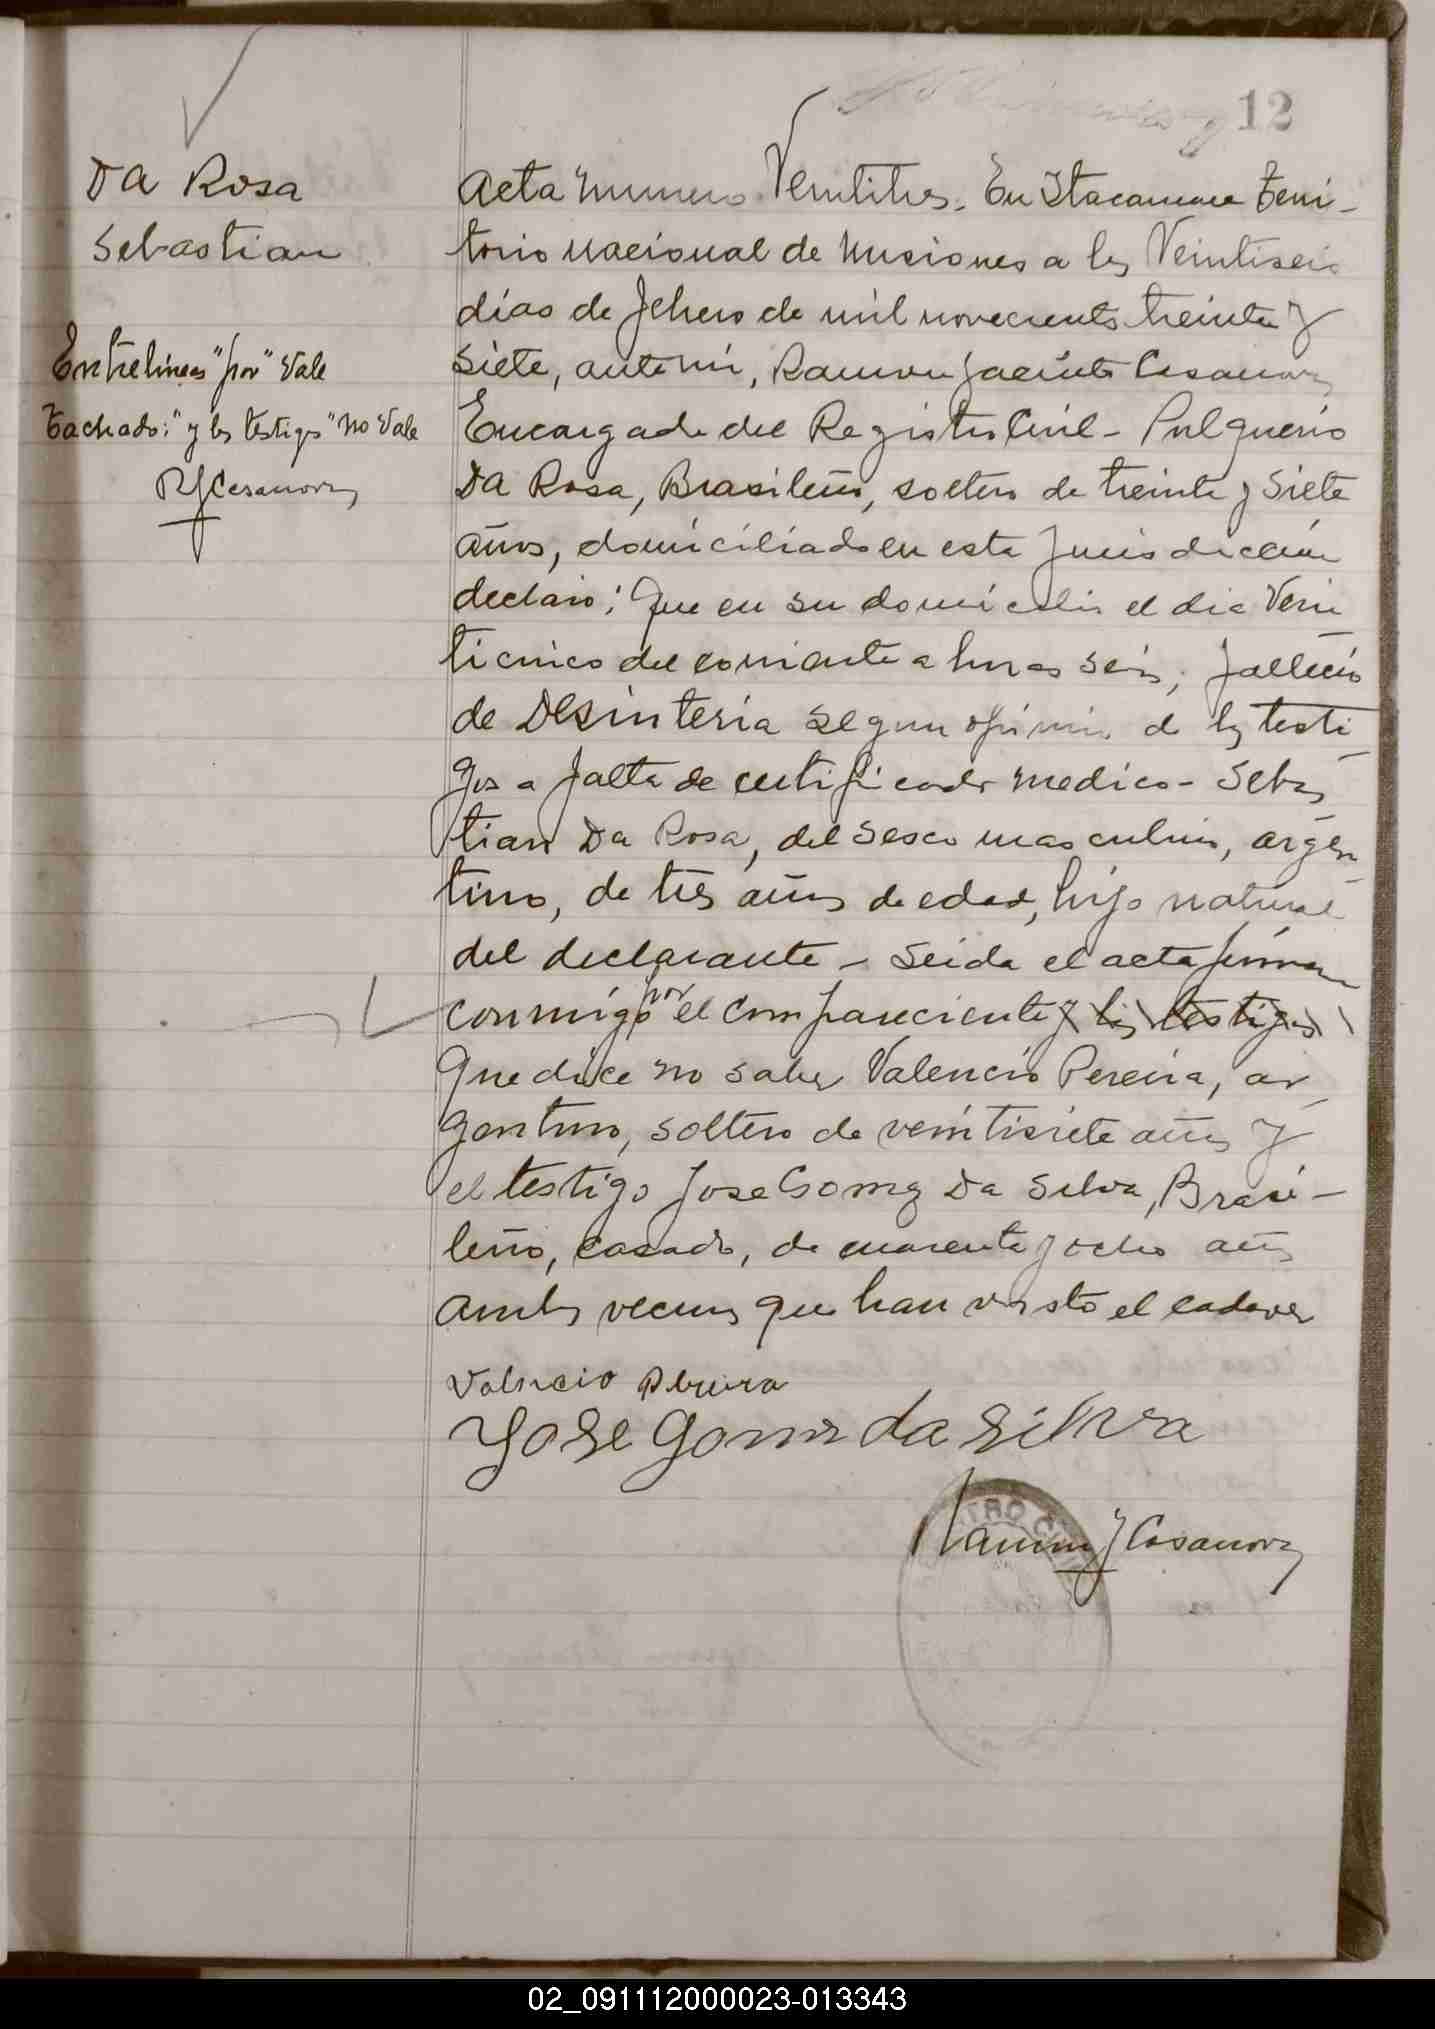 12
Da Rosa
Sebastian
Entrelineas "por" Vale
Tachado: "y los testigos" No Vale
RJCasanova
Acta Numero Ventitres. En Itacaruare Terri-
torio Nacional de Misiones a los Veintiseis
dias de Febrero de mil novecientos treinta y
Siete, ante mi, Ramon Jacinto Casanova
Encargado del Registro Civil - Pulguerio
Da Rosa, Brasileño, soltero de treinta y siete
años, domiciliado en esta Jurisdiccion
declaro: Que en su domicilio el dia Vein
ticnico del corriente a horas seis, fallecio
de Desinteria segun opinion de los testi
gos a falta de certificado medico - Sebas
tian Da Rosa, del sesco masculino, argen
tino, de tres años de edad, hijo natural
del declarante - Leida el acta firman
conmigo por el compareciente y los testigos
Que dice no saber Valencio Pereira, ar
gentino, soltero de veintisiete años y
el testigo Jose Gomez Da Silva, Brasi-
leño, casado, de cuarenta y ocho años
ambos vecinos que han visto el cadaver
Valencio Pereira
Jose Gomes da Silva
Ramon J Casanova
02_091112000023-013343